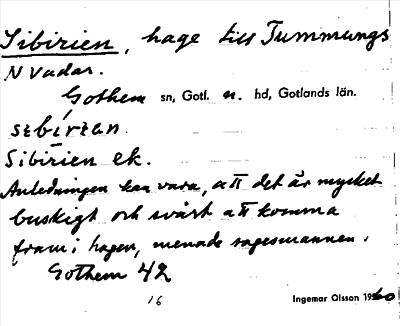 Sibirien, hage till Tummungs
N Vadar.
Gothem sn, Gotl. n. hd, Gotlands län.
sibirian
Sibirien ek.
Anledningen kan vara, att det är mycket
buskigt och svårt att komma
fram i hagen, menade sagesmannen.
Gothem 42
16
Ingemar Olsson 1960